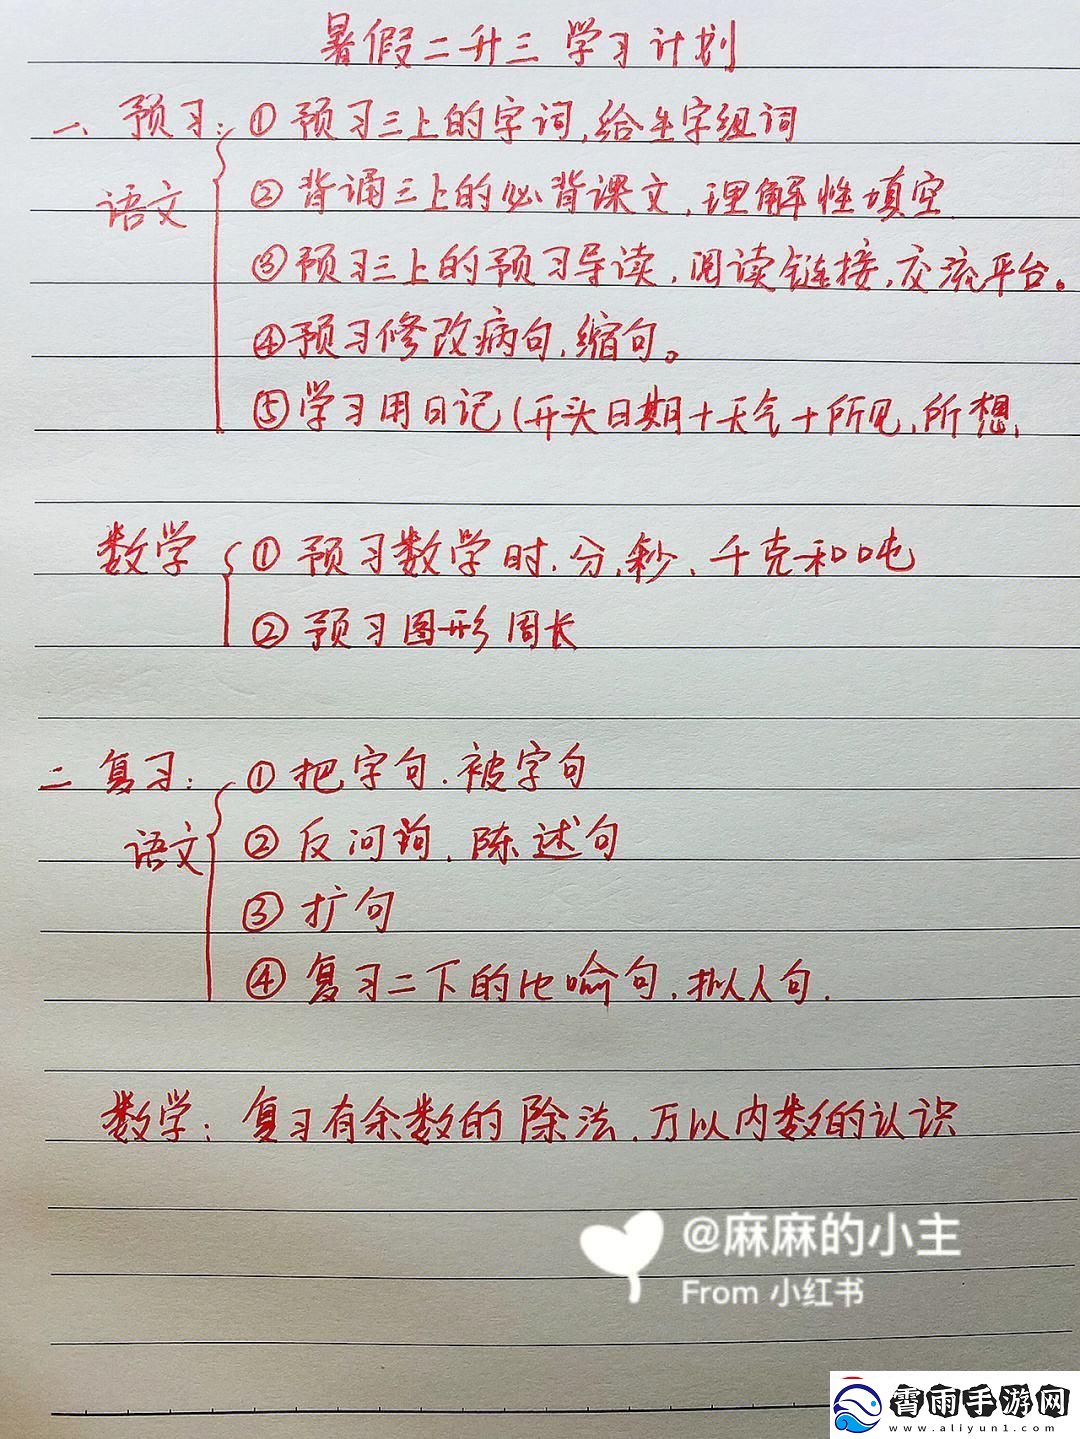 暑假二升三 学习计划
一、预习: ①预习三上的字词,给生字组词
语文 ②背诵三上的必背课文,理解性填空
③预习三上的预习导读,阅读链接,交流平台。
④预习修改病句,缩句。
⑤学习用日记(开头日期+天气+所见,所想,
数学 ①预习数学时、分、秒、千克和吨
②预习图形周长
二 复习: ①把字句.被字句
语文 ②反问句,陈述句
③扩句
④复习二下的比喻句,拟人句.
数学: 复习有余数的除法,万以内数的认识
@麻麻的小主
From 小红书
霄雨手游网
www.aliyun1.com